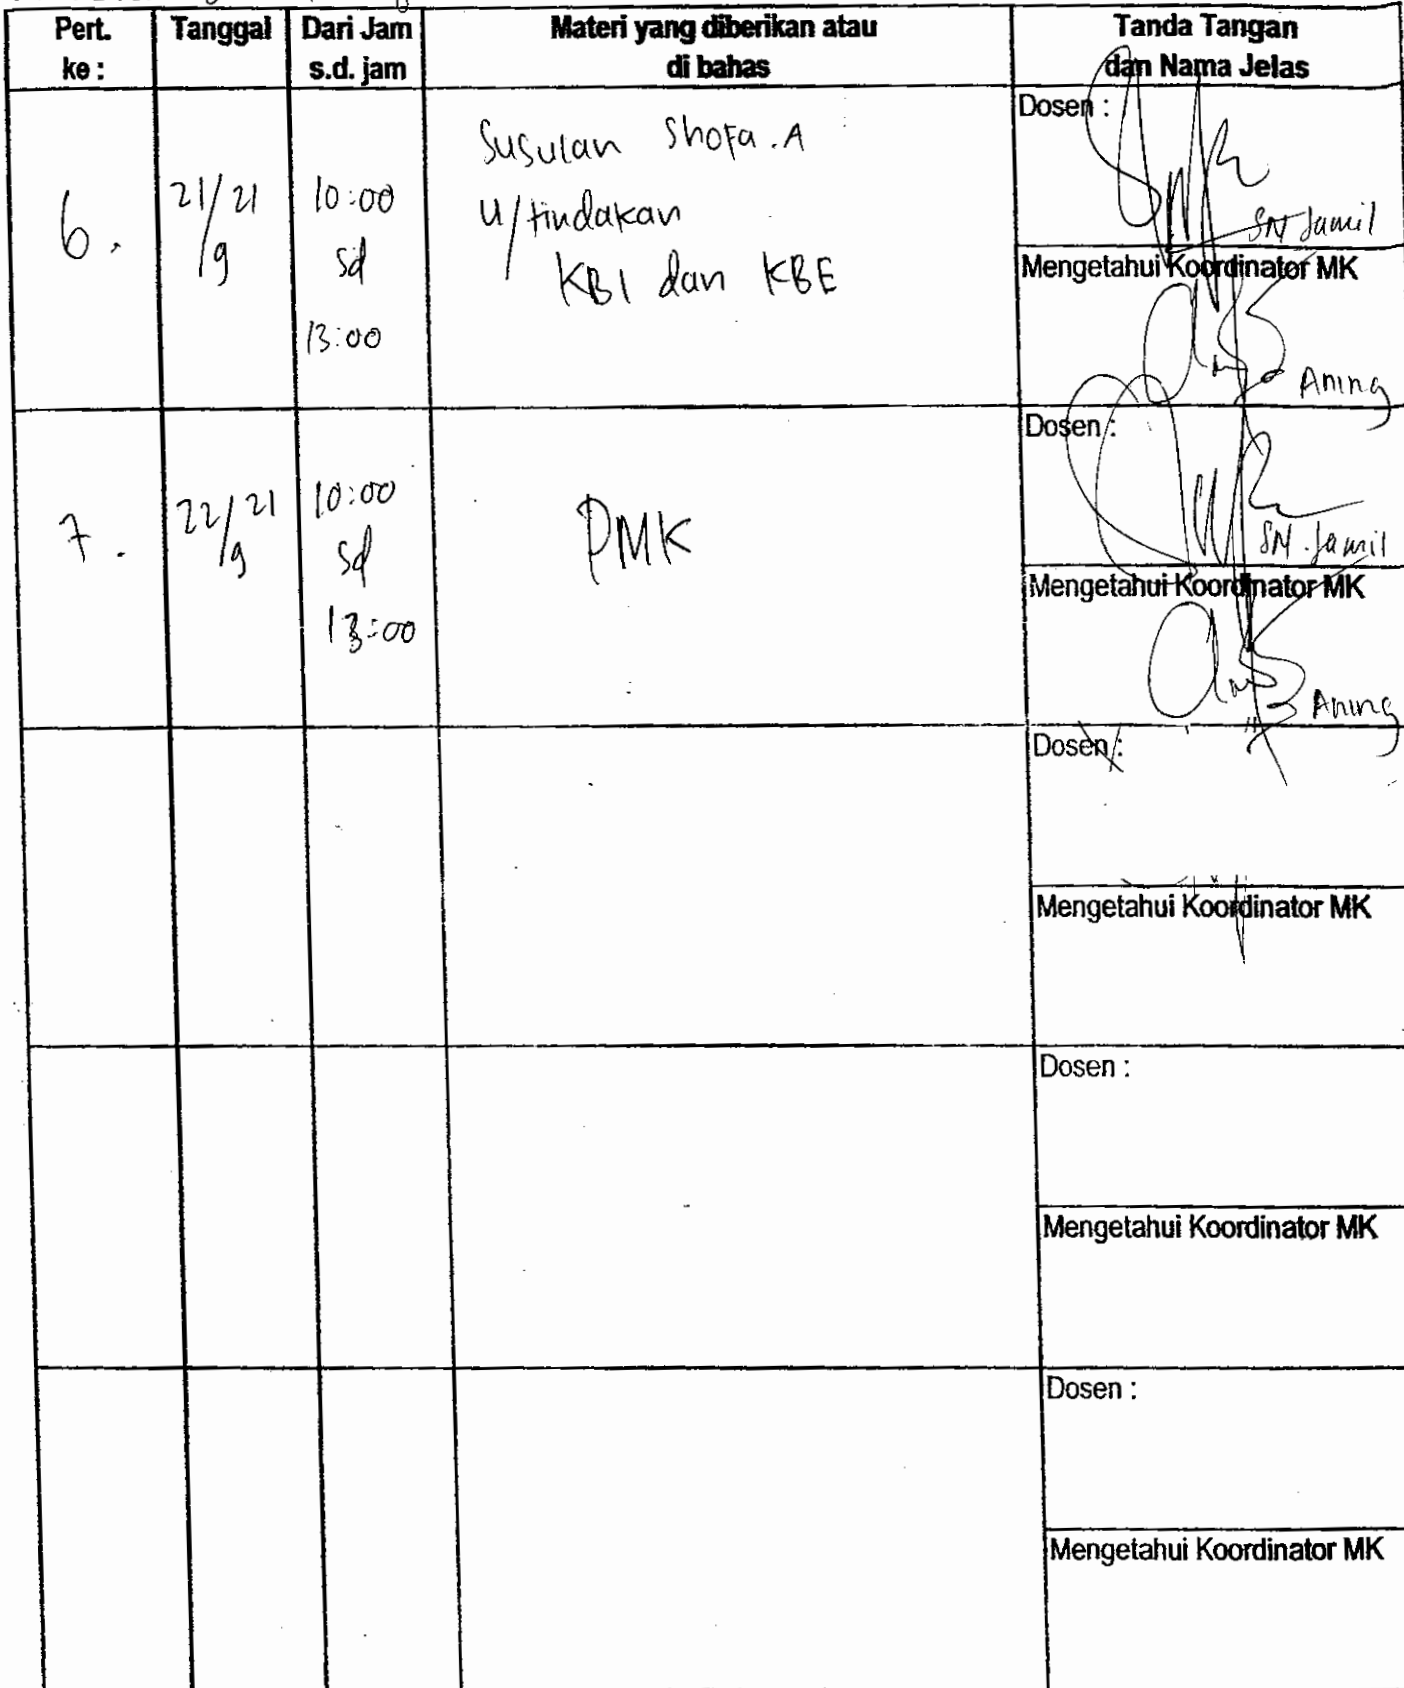 Pert. ke :
Tanggal
Dari Jam s.d. jam
Materi yang diberikan atau di bahas
Tanda Tangan dan Nama Jelas
6.
21/21
/9
10:00
sd
13:00
Susulan Shofa.A
u/tindakan
KBI dan KBE
Dosen :
SN Jamil
Mengetahui Koordinator MK
Aning
7.
22/21
/9
10:00
sd
13:00
PMK
Dosen :
SN. Jamil
Mengetahui Koordinator MK
Aning
Dosen :
Mengetahui Koordinator MK
Dosen :
Mengetahui Koordinator MK
Dosen :
Mengetahui Koordinator MK